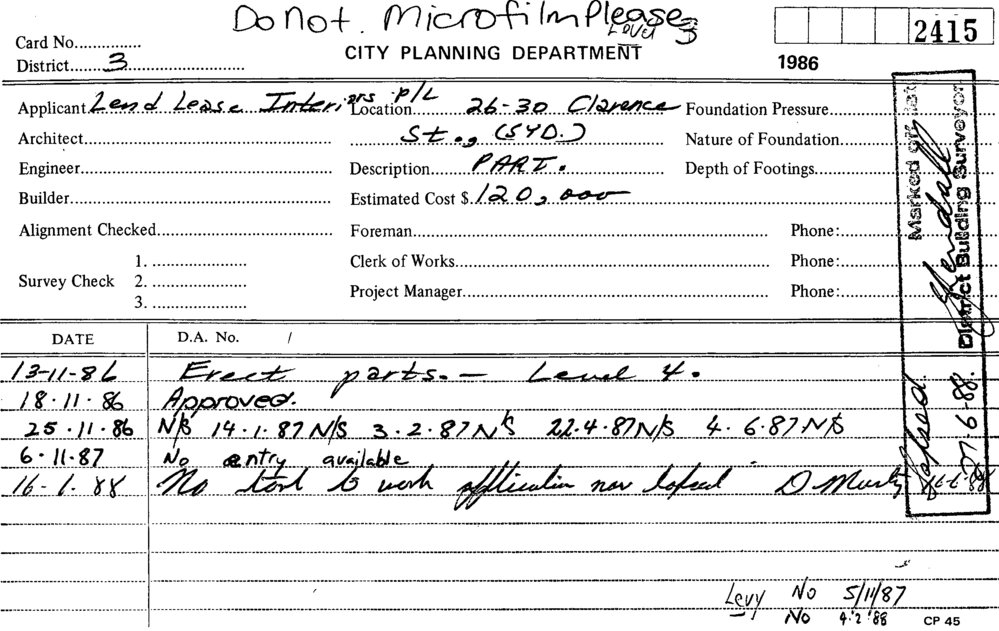 Do not Microfilm Please
Level 3
Card No.
District 3
CITY PLANNING DEPARTMENT
2415
1986
Applicant Lend Lease Interiors P/L Location 26-30 Clarence Foundation Pressure
Architect St., (SYD.) Nature of Foundation
Engineer Description PART. Depth of Footings
Builder Estimated Cost $ 120,000
Alignment Checked Foreman Phone:
1. Clerk of Works Phone:
Survey Check 2.
3. Project Manager Phone:
Marked off
District Building Surveyor
Lapsed. 27.6.88.
DATE D.A. No. /
13-11-86 Erect parts. - Level 4.
18.11.86 Approved.
25.11.86 N/S 14.1.87 N/S 3.2.87 N/S 22.4.87 N/S 4.6.87 N/S
6.11.87 No entry available
16-6.88 No start to work application now lapsed
Levy No 5/11/87
No 4.2.88
CP 45